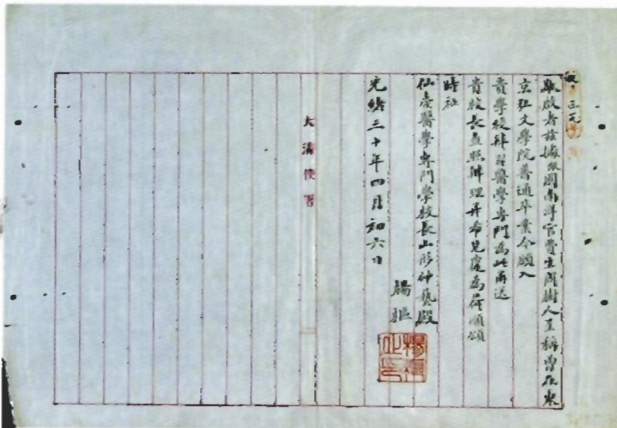 敬啟者茲據敝國南洋官費生周樹人呈稱曾在東
京弘文學院普通卒業今願入
貴學校肄習醫學專門為此肅送
貴校長查照辦理并希見覆為荷順頌
時祉
仙臺醫學專門學校長山形仲藝殿
楊樞
光緒三十年四月初六日
大清使署
楊樞之印